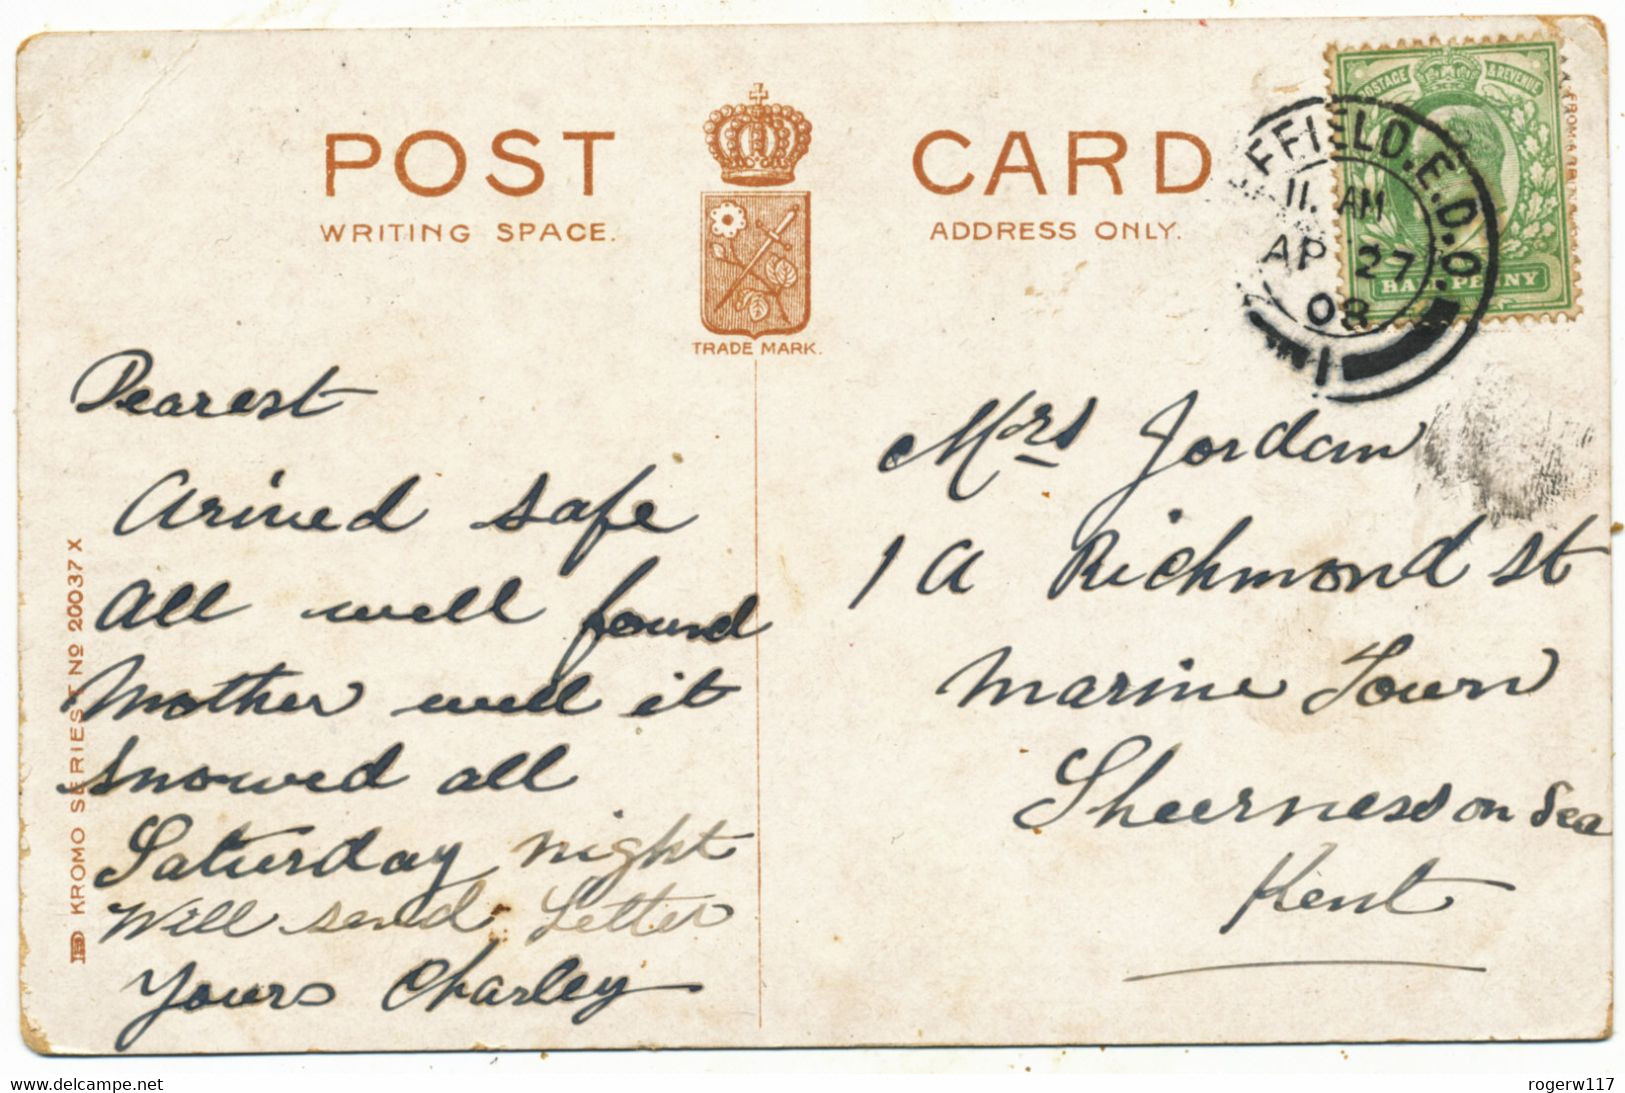 POST CARD
WRITING SPACE.
ADDRESS ONLY.
TRADE MARK.
POSTAGE & REVENUE
HALFPENNY
FFIELD.E.D.O.
11. AM
AP 27
08
1
Dearest
Arived safe
All well found
Mother well it
snowed all
Saturday night
Will send Letter
Yours Charley
Mrs Jordan
1 A Richmond St
Marine Town
Sheerness on Sea
Kent
KROMO SERIES Nº 20037 X
delcampe.net
rogerw117